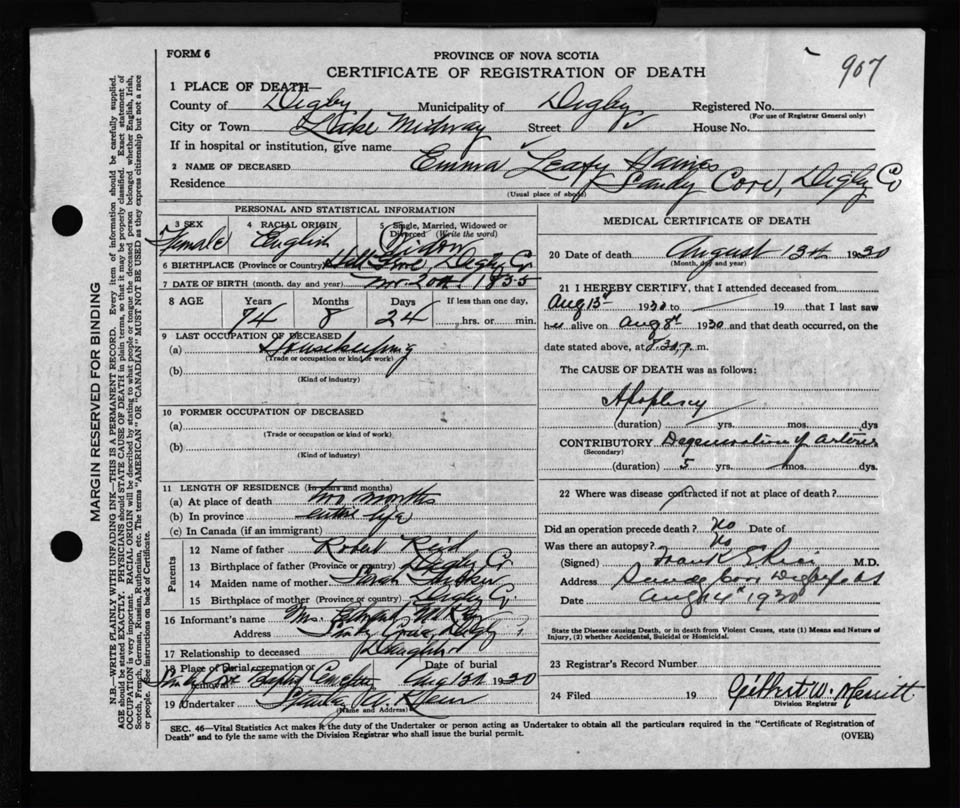 907
FORM 6
PROVINCE OF NOVA SCOTIA
CERTIFICATE OF REGISTRATION OF DEATH
1 PLACE OF DEATH—
County of Digby Municipality of Digby Registered No.
(For use of Registrar General only)
City or Town Lake Midway Street House No.
If in hospital or institution, give name
2 NAME OF DECEASED Emma Leafy Haines
Residence Sandy Cove, Digby Co
(Usual place of abode)
PERSONAL AND STATISTICAL INFORMATION
3 SEX 4 RACIAL ORIGIN 5 Single, Married, Widowed or Divorced (Write the word)
Female English Widow
6 BIRTHPLACE (Province or Country) Digby Co.
7 DATE OF BIRTH (month, day and year) Nov. 20th 1855
8 AGE Years Months Days If less than one day,
74 8 24 hrs. or min.
9 LAST OCCUPATION OF DECEASED
(a) Housekeeping
(Trade or occupation or kind of work)
(b)
(Kind of industry)
10 FORMER OCCUPATION OF DECEASED
(a)
(Trade or occupation or kind of work)
(b)
(Kind of industry)
11 LENGTH OF RESIDENCE (In years and months)
(a) At place of death two months
(b) In province entire life
(c) In Canada (if an immigrant)
Parents
12 Name of father Robert Reid
13 Birthplace of father (Province or country) Digby Co
14 Maiden name of mother Sarah
15 Birthplace of mother (Province or country) Digby Co
16 Informant's name Mrs.
Address Sandy Cove, Digby
17 Relationship to deceased Daughter
18 Place of burial, cremation or removal Sandy Cove Baptist Cemetery Date of burial Aug 15th 1930
19 Undertaker Stanley
(Name and Address)
MEDICAL CERTIFICATE OF DEATH
20 Date of death August 13th 1930
(Month, day and year)
21 I HEREBY CERTIFY, that I attended deceased from
Aug 13th 1930 to 19 that I last saw
her alive on Aug 8th 1930 and that death occurred, on the
date stated above, at m.
The CAUSE OF DEATH was as follows:
Apoplexy
(duration) yrs. mos. dys
CONTRIBUTORY Degeneration of arteries
(Secondary)
(duration) 5 yrs. mos. dys.
22 Where was disease contracted if not at place of death?
Did an operation precede death? No Date of
Was there an autopsy? No
(Signed) Frank E Rice M.D.
Address Sandy Cove Digby Co NS
Date Aug 14th 1930
State the Disease causing Death, or in death from Violent Causes, state (1) Means and Nature of
Injury, (2) whether Accidental, Suicidal or Homicidal.
23 Registrar's Record Number
24 Filed 19 Gilbert W. Merritt
Division Registrar
SEC. 46—Vital Statistics Act makes it the duty of the Undertaker or person acting as Undertaker to obtain all the particulars required in the "Certificate of Registration of
Death" and to fyle the same with the Division Registrar who shall issue the burial permit. (OVER)
MARGIN RESERVED FOR BINDING
N.B.—WRITE PLAINLY WITH UNFADING INK—THIS IS A PERMANENT RECORD. Every item of information should be carefully supplied.
AGE should be stated EXACTLY. PHYSICIANS should STATE CAUSE OF DEATH in plain terms, so that it may be properly classified. Exact statement of
OCCUPATION is very important. RACIAL ORIGIN will be described by stating to what people or tongue the deceased person belonged whether English, Irish,
Scotch, French, German, Russian, Ruthenian, etc. The terms "AMERICAN" OR "CANADIAN" MUST NOT BE USED as they express citizenship but not a race
or people. See instructions on back of Certificate.